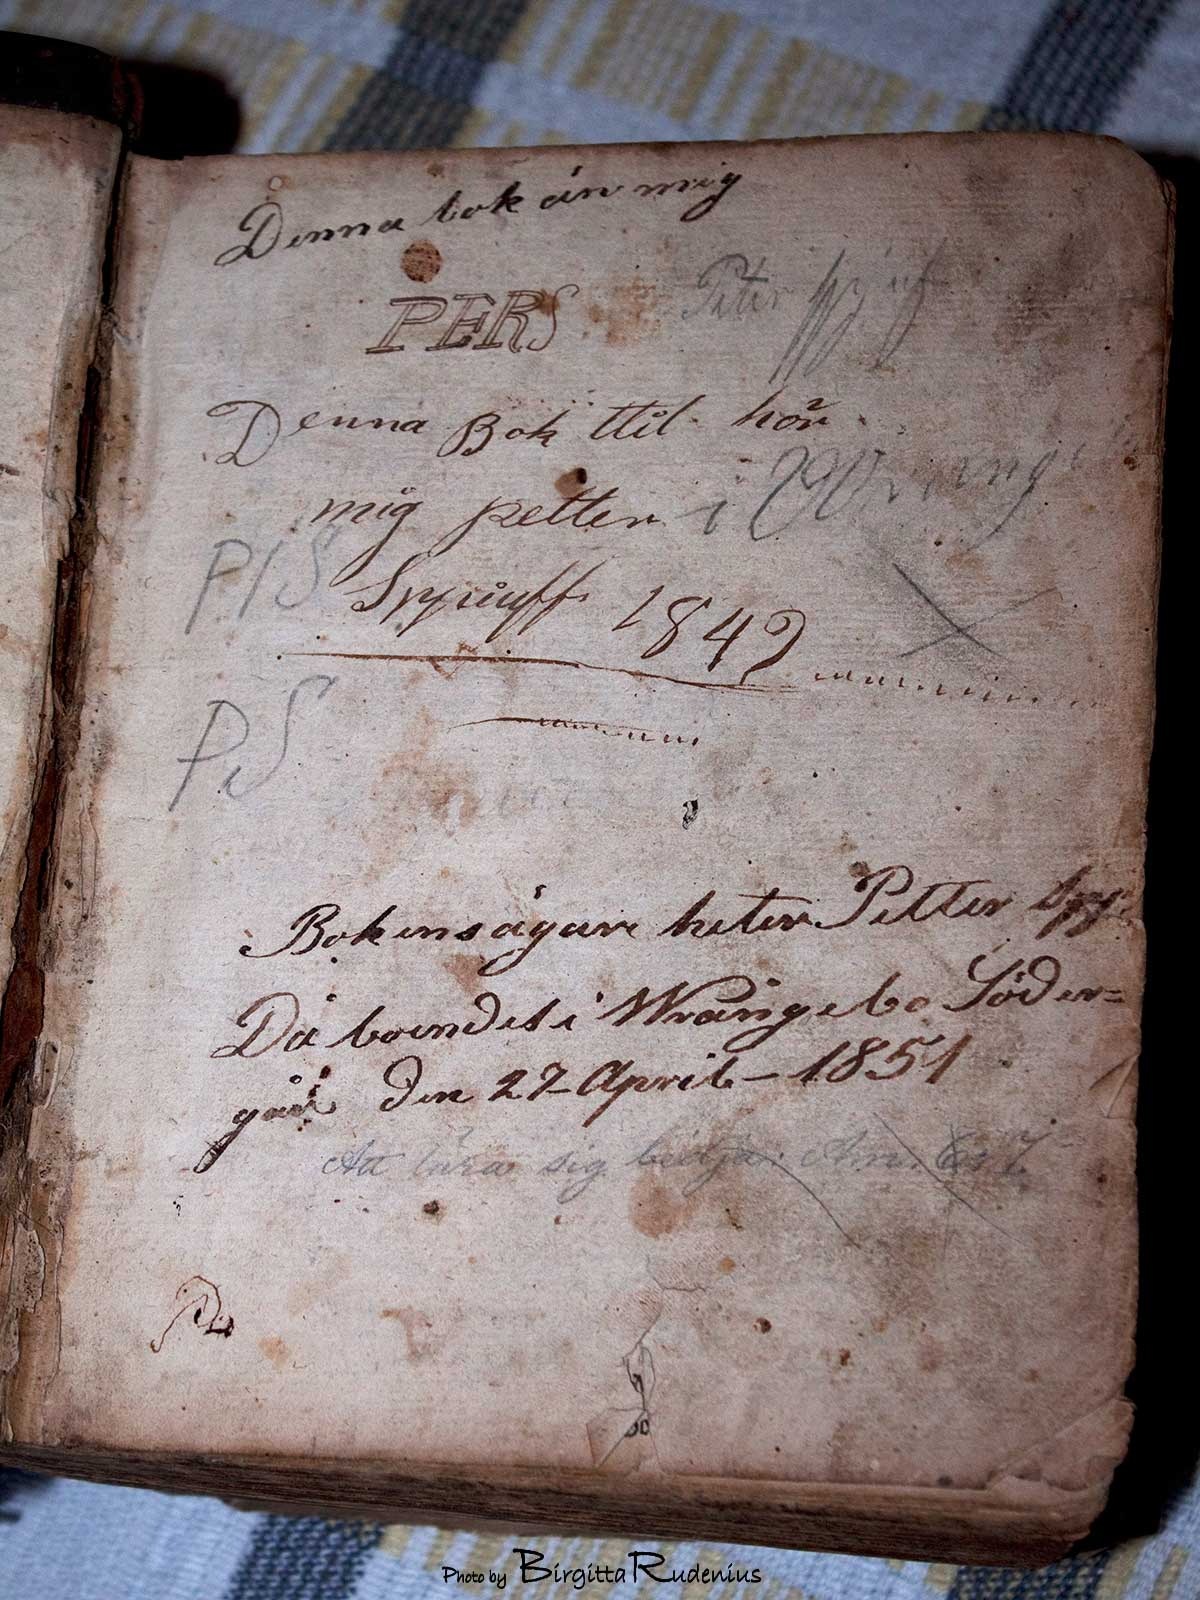 Denna bok än mig
PERS
Peter
Denna Bok ttil hör
mig petter i
PIS
1849
PS
Bokens ägare heter Petter
Då boendes i Wrångebo Söder=
går den 27 April – 1851
Att lära sig bedja.
Photo by Birgitta Rudenius